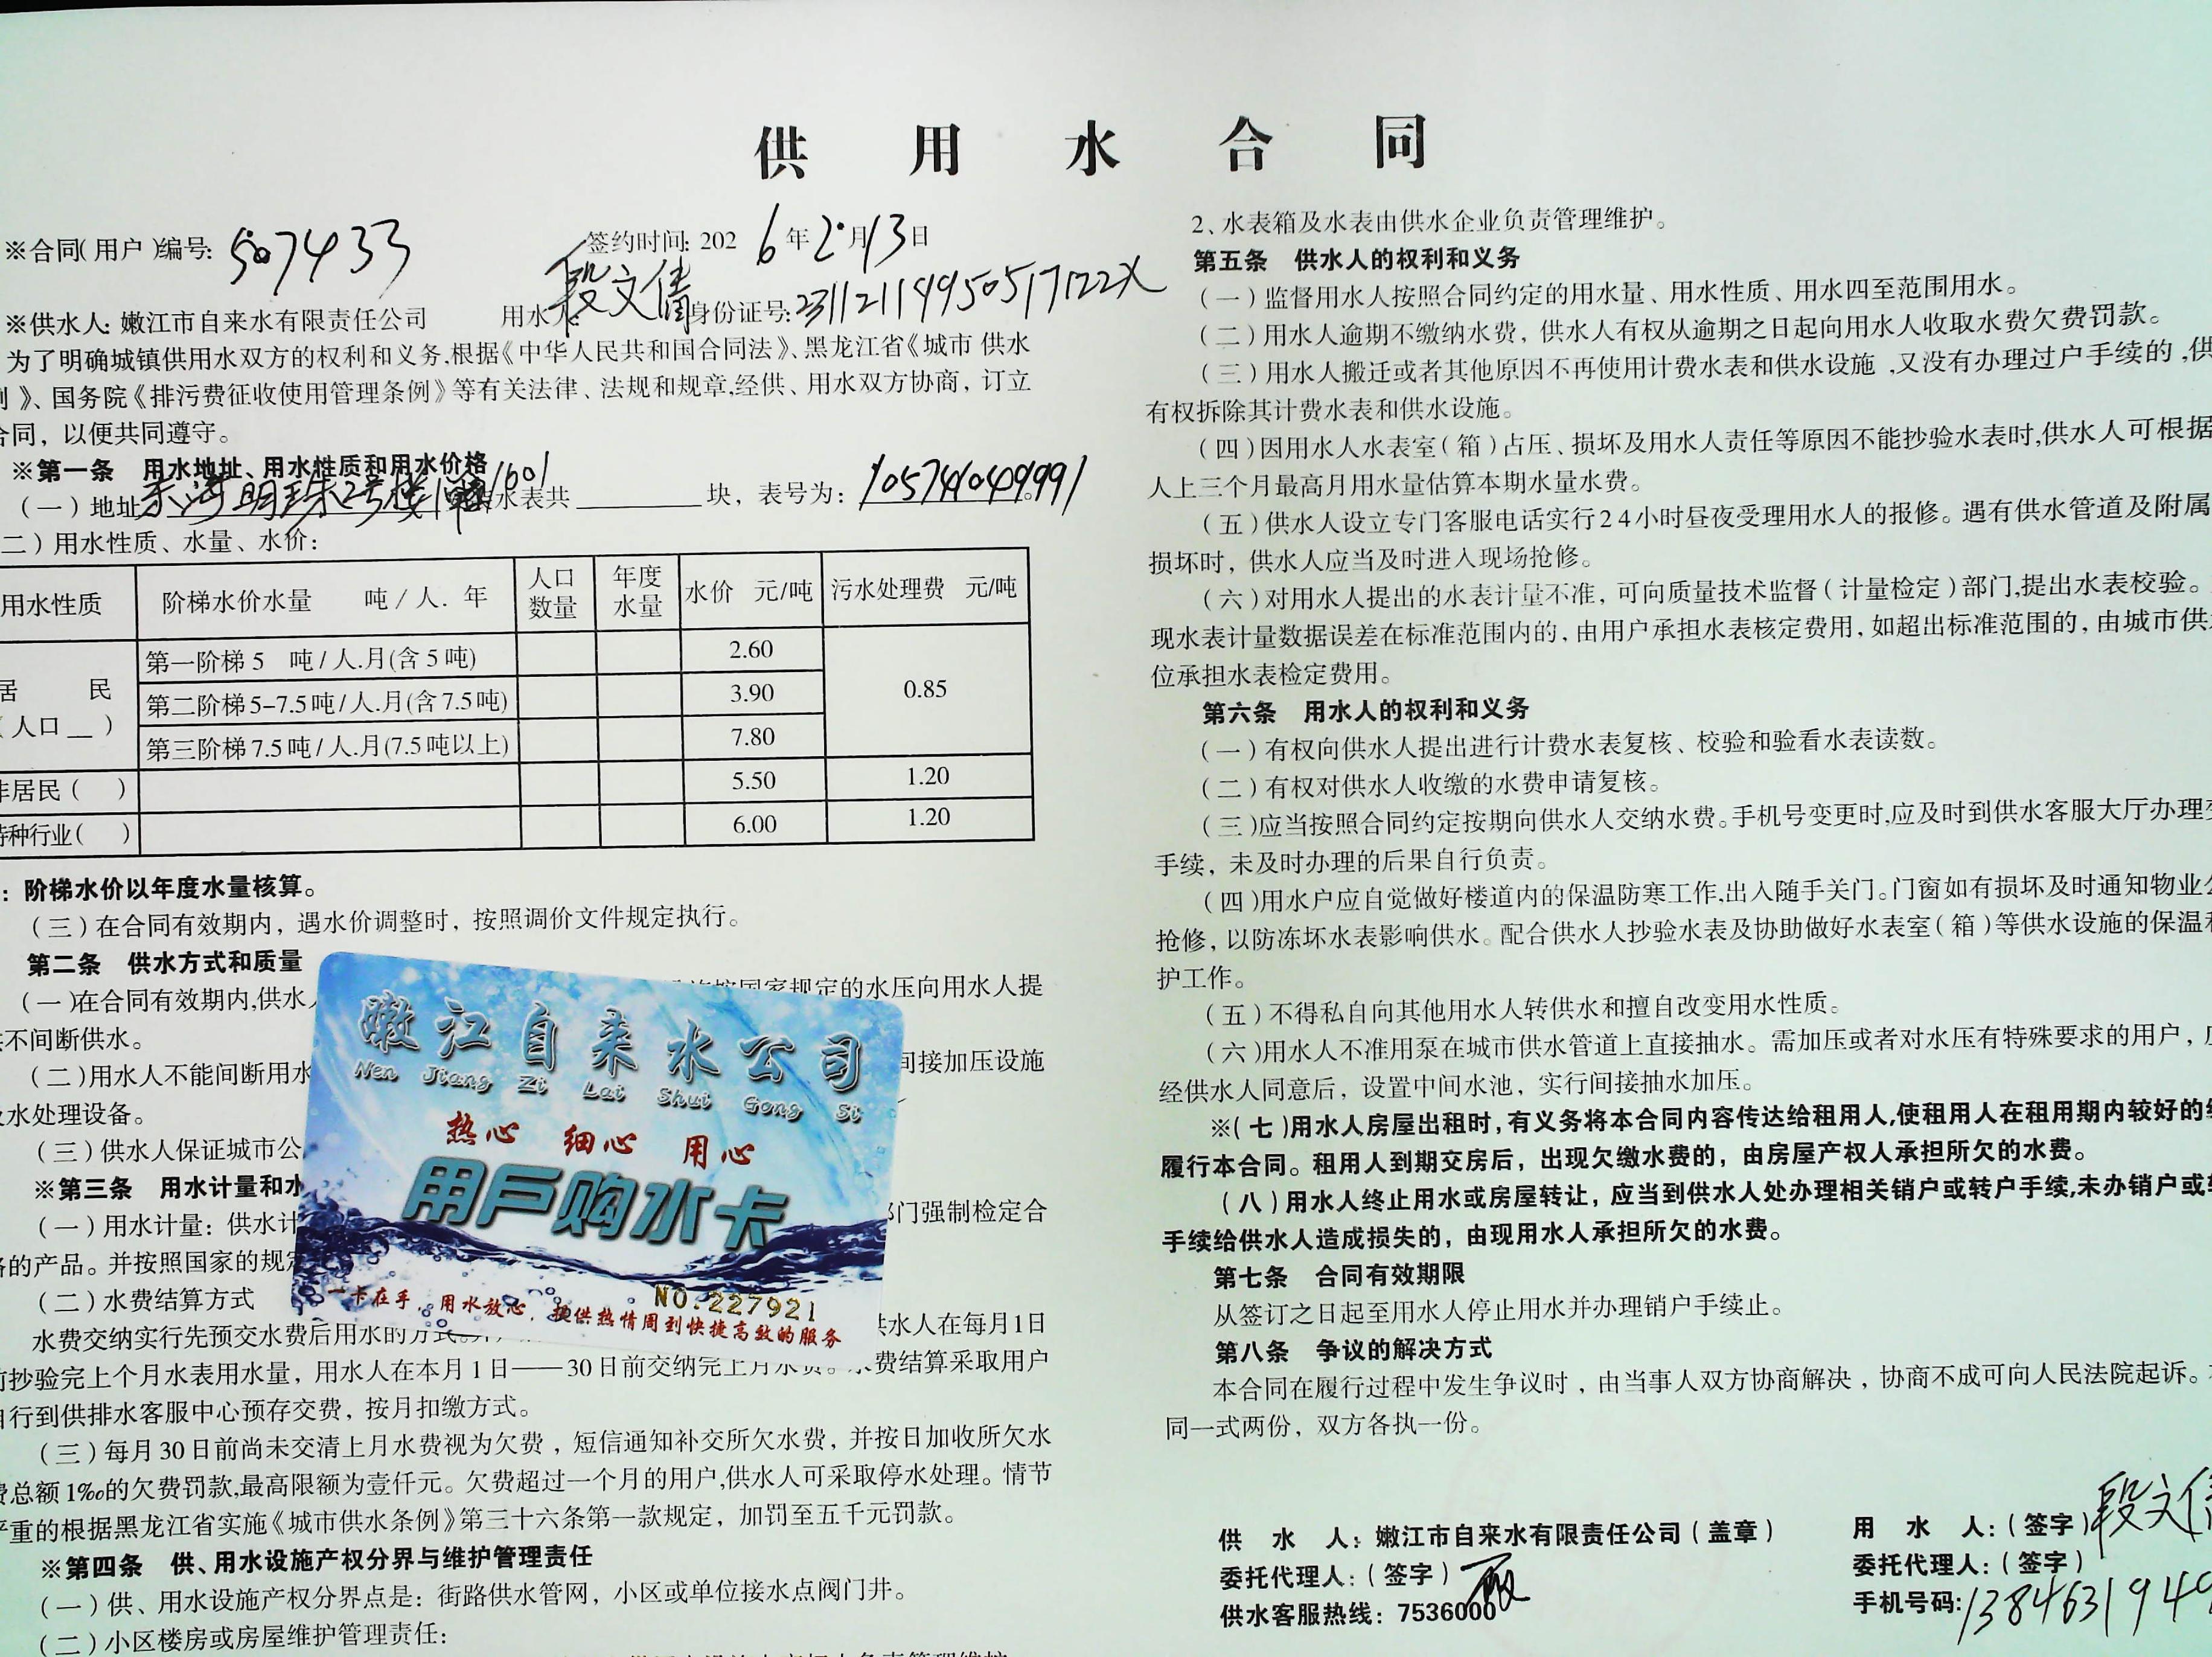 供用水合同
※合同(用户)编号: 507433 签约时间: 2026年2月13日
※供水人: 嫩江市自来水有限责任公司 用水人: 段文倩 身份证号:
为了明确城镇供用水双方的权利和义务,根据《中华人民共和国合同法》、黑龙江省《城市供水
》、国务院《排污费征收使用管理条例》等有关法律、法规和规章,经供、用水双方协商，订立
合同，以便共同遵守。
※第一条 用水地址、用水性质和用水价格
(一)地址 东海明珠2号楼1单1601 水表共______块，表号为: 105741049991。
二)用水性质、水量、水价:
用水性质 阶梯水价水量 吨/人.年 人口数量 年度水量 水价 元/吨 污水处理费 元/吨
居民(人口__) 第一阶梯5 吨/人.月(含5吨) 2.60 0.85
第二阶梯5-7.5吨/人.月(含7.5吨) 3.90
第三阶梯7.5吨/人.月(7.5吨以上) 7.80
非居民( ) 5.50 1.20
特种行业( ) 6.00 1.20
: 阶梯水价以年度水量核算。
(三)在合同有效期内，遇水价调整时，按照调价文件规定执行。
第二条 供水方式和质量
(一)在合同有效期内,供水人 按国家规定的水压向用水人提
不间断供水。
(二)用水人不能间断用水 间接加压设施
水处理设备。
(三)供水人保证城市公
※第三条 用水计量和水
(一)用水计量: 供水计 部门强制检定合
格的产品。并按照国家的规定
(二)水费结算方式
水费交纳实行先预交水费后用水的方式。 供水人在每月1日
前抄验完上个月水表用水量，用水人在本月1日——30日前交纳完上月水费。水费结算采取用户
自行到供排水客服中心预存交费，按月扣缴方式。
(三)每月30日前尚未交清上月水费视为欠费，短信通知补交所欠水费，并按日加收所欠水
费总额1‰的欠费罚款,最高限额为壹仟元。欠费超过一个月的用户,供水人可采取停水处理。情节
严重的根据黑龙江省实施《城市供水条例》第三十六条第一款规定，加罚至五千元罚款。
※第四条 供、用水设施产权分界与维护管理责任
(一)供、用水设施产权分界点是: 街路供水管网，小区或单位接水点阀门井。
(二)小区楼房或房屋维护管理责任:
嫩江自来水公司
Nen Jiang Zi Lai Shui Gong Si
热心 细心 用心
用户购水卡
NO.227921
一卡在手，用水放心，提供热情周到快捷高效的服务
2、水表箱及水表由供水企业负责管理维护。
第五条 供水人的权利和义务
(一)监督用水人按照合同约定的用水量、用水性质、用水四至范围用水。
(二)用水人逾期不缴纳水费，供水人有权从逾期之日起向用水人收取水费欠费罚款。
(三)用水人搬迁或者其他原因不再使用计费水表和供水设施,又没有办理过户手续的,供
有权拆除其计费水表和供水设施。
(四)因用水人水表室(箱)占压、损坏及用水人责任等原因不能抄验水表时,供水人可根据
人上三个月最高月用水量估算本期水量水费。
(五)供水人设立专门客服电话实行24小时昼夜受理用水人的报修。遇有供水管道及附属
损坏时，供水人应当及时进入现场抢修。
(六)对用水人提出的水表计量不准，可向质量技术监督(计量检定)部门,提出水表校验。
现水表计量数据误差在标准范围内的,由用户承担水表核定费用,如超出标准范围的,由城市供
位承担水表检定费用。
第六条 用水人的权利和义务
(一)有权向供水人提出进行计费水表复核、校验和验看水表读数。
(二)有权对供水人收缴的水费申请复核。
(三)应当按照合同约定按期向供水人交纳水费。手机号变更时,应及时到供水客服大厅办理变
手续，未及时办理的后果自行负责。
(四)用水户应自觉做好楼道内的保温防寒工作,出入随手关门。门窗如有损坏及时通知物业公
抢修，以防冻坏水表影响供水。配合供水人抄验水表及协助做好水表室(箱)等供水设施的保温和
护工作。
(五)不得私自向其他用水人转供水和擅自改变用水性质。
(六)用水人不准用泵在城市供水管道上直接抽水。需加压或者对水压有特殊要求的用户，应
经供水人同意后，设置中间水池，实行间接抽水加压。
※(七)用水人房屋出租时,有义务将本合同内容传达给租用人,使租用人在租用期内较好的
履行本合同。租用人到期交房后，出现欠缴水费的，由房屋产权人承担所欠的水费。
(八)用水人终止用水或房屋转让，应当到供水人处办理相关销户或转户手续,未办销户或
手续给供水人造成损失的，由现用水人承担所欠的水费。
第七条 合同有效期限
从签订之日起至用水人停止用水并办理销户手续止。
第八条 争议的解决方式
本合同在履行过程中发生争议时，由当事人双方协商解决，协商不成可向人民法院起诉。
同一式两份，双方各执一份。
供 水 人: 嫩江市自来水有限责任公司(盖章)
委托代理人:(签字)
供水客服热线: 7536000
用 水 人:(签字) 段文倩
委托代理人:(签字)
手机号码: 138463194